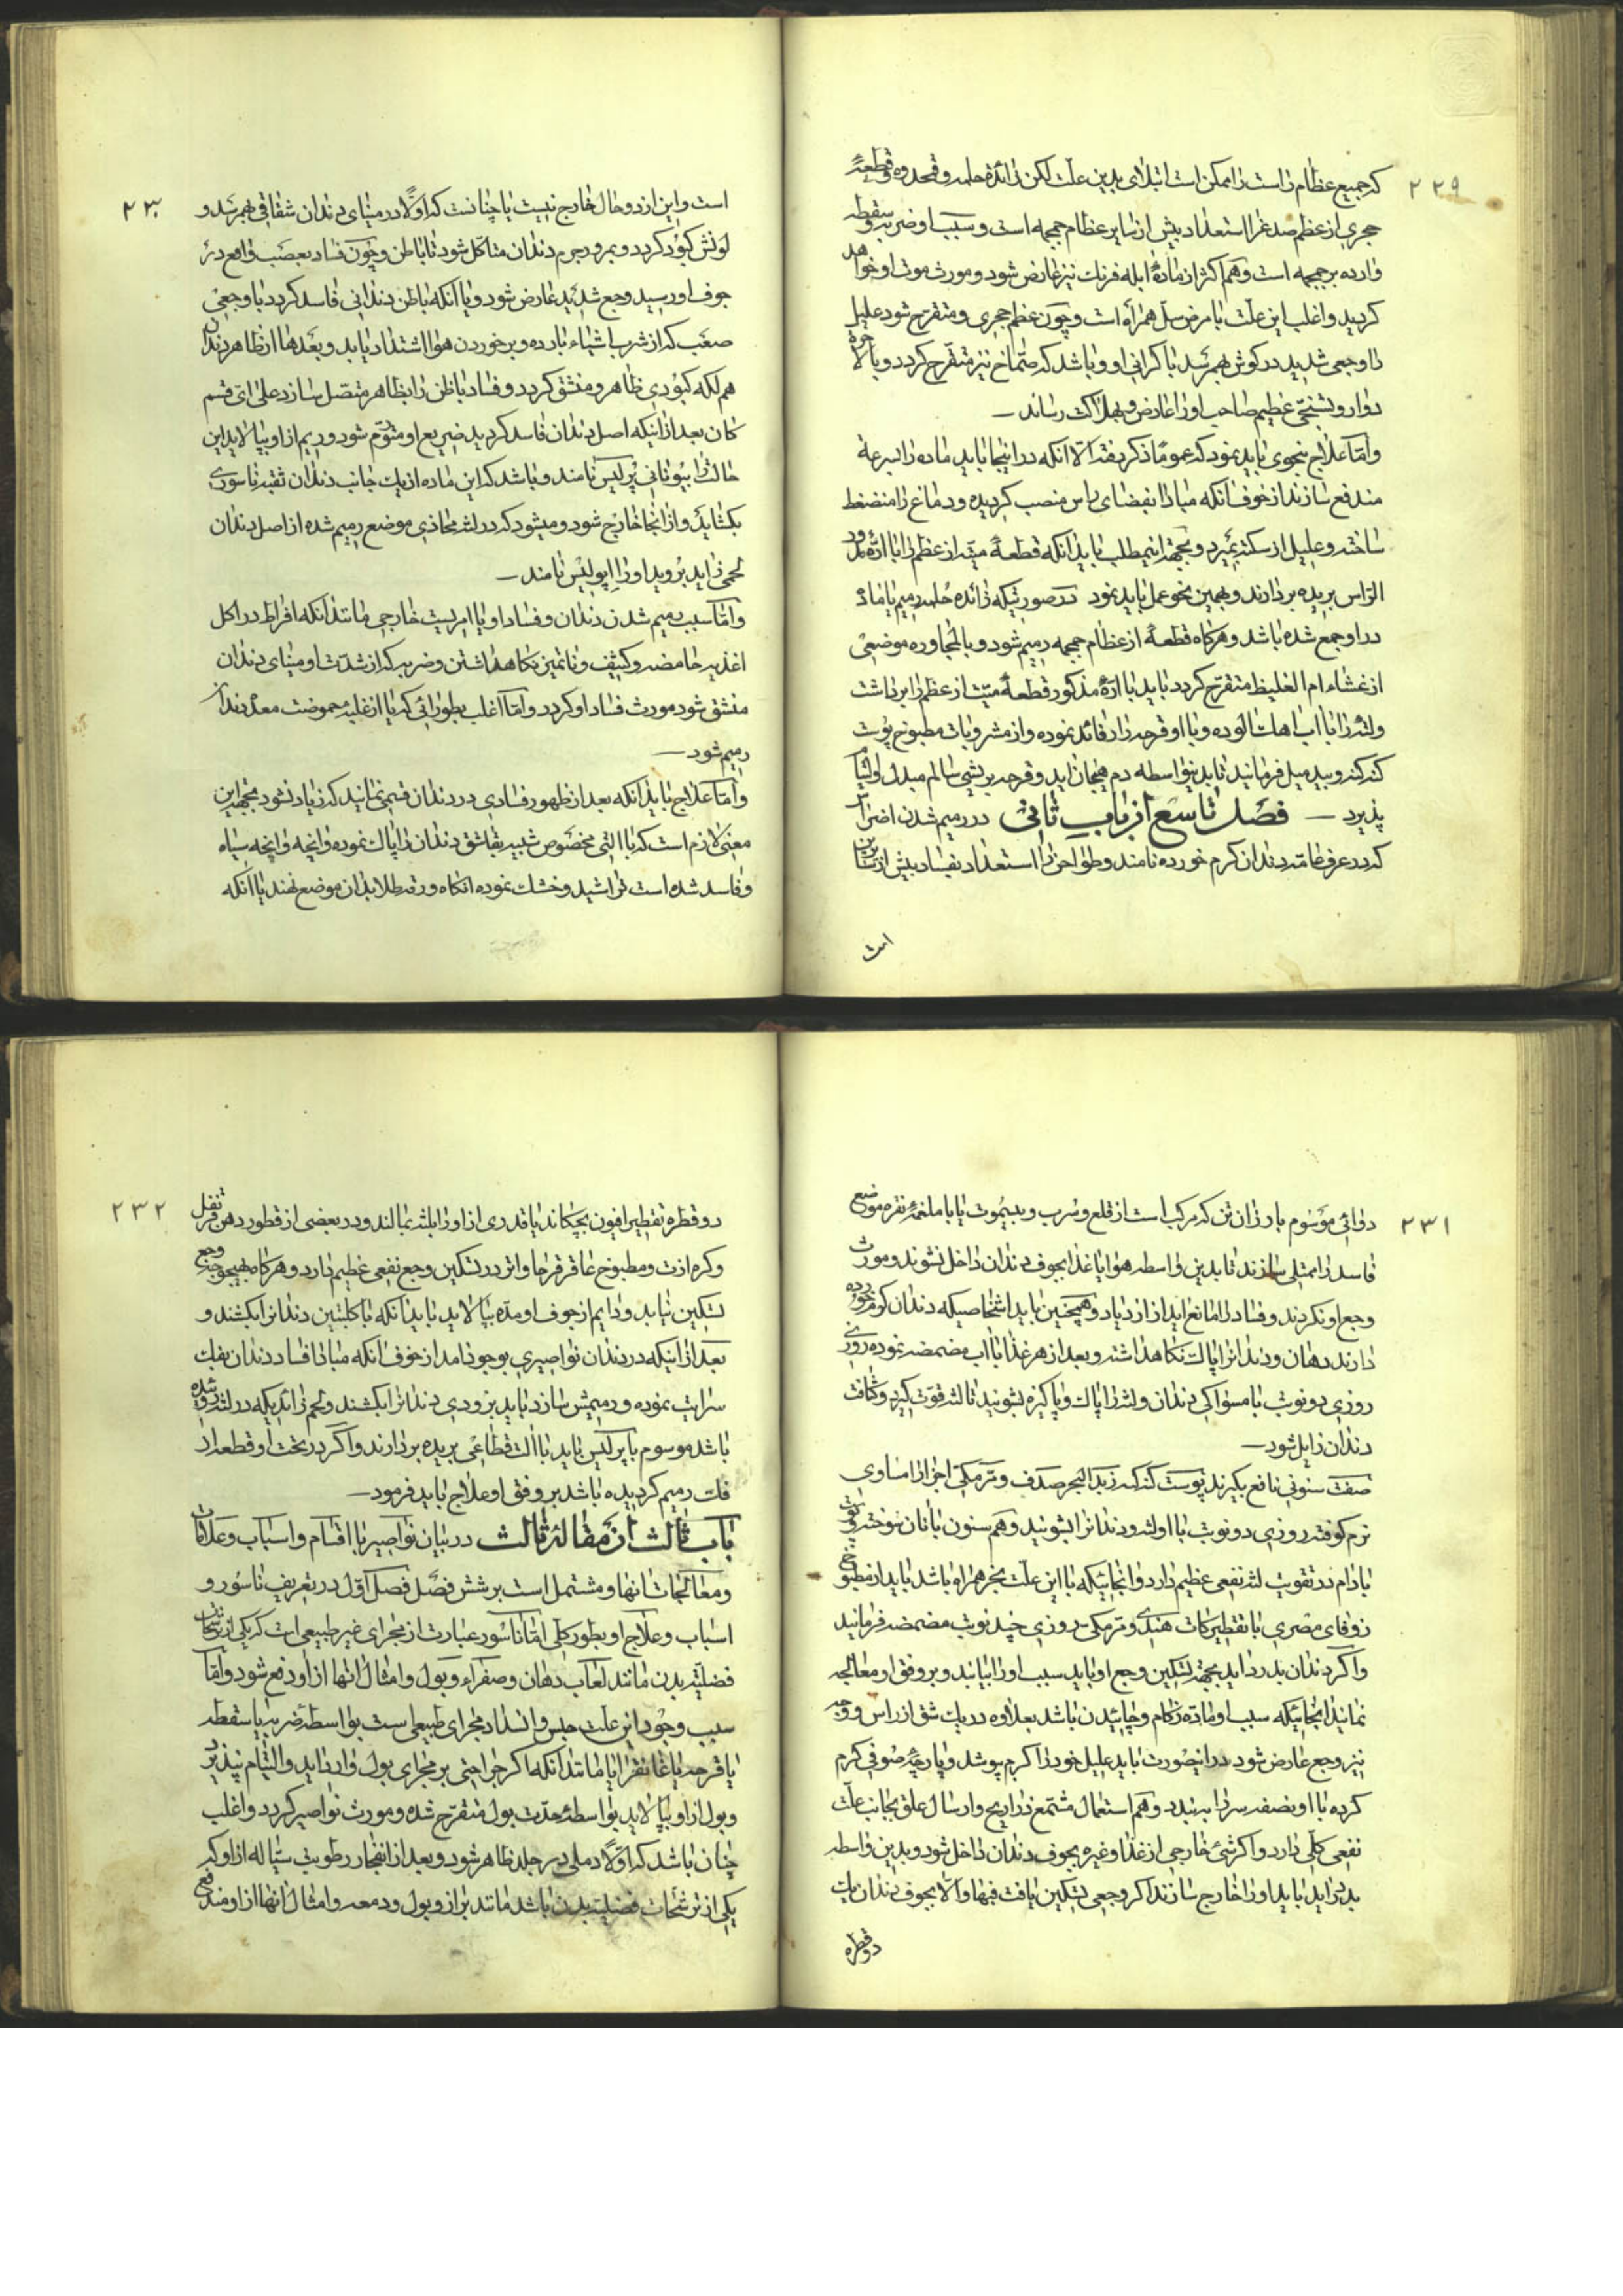 ۲۲۹
که جمیع عظام راست را ممکن است ابتلای بدین علت لکن زائدهٔ حلمه و قمحدوه و قطعهٔ
حجری از عظم صدغ را استعداد بیش از سایر عظام جمجمه است و سبب او ضربه و سقطه
وارده بر جمجمه است و هم اکثر از مادهٔ ابله فرنک نیز عارض شود و مورث موت او خواهد
کردید و اغلب این علت با مرض سل همراه است و چون عظم حجری و متقرح شود علیل
را وجعی شدید در کوش بهمرسد با کرانی او و باشد که صماخ نیز متقرح کردد و بالاخره
دوار و تشنجی عظیم صاحب او را عارض و بهلاکت رساند
و اما علاج بنحوی باید نمود که عموماً ذکر یافت الا انکه در اینجا باید ماده را بسرعة
مندفع سازند از خوف انکه مبادا بفضای راس منصب کردیده و دماغ را منضغط
ساخته و علیل از سکته بمیرد و بجهة اینمطلب باید انکه قطعهٔ میته از عظم را با ارهٔ مدور
الراس بریده بردارند و بهمین نحو عمل باید نمود در صورتیکه زائده حلمه رمیم یا مادهٔ
در او جمع شده باشد و هرکاه قطعهٔ از عظام جمجمه رمیم شود و بالمجاوره موضعی
از غشاء ام الغلیظ متقرح کردد باید با ارهٔ مذکور قطعهٔ میت از عظم را برداشت
ولته را با اب اهک الوده و با او قرحه را رفائد نموده و از مشروبات مطبوخ پوست
کنه کنه و بید میل فرمایند تا بدینواسطه دم بهیجان اید و قرحه بریشی سالم مبدل و التیام
پذیرد — فصل تاسع از باب ثانی در رمیم شدن اضراس
که در عرف عامه دندان کرم خورده نامند و طواحن را استعداد بفساد بیش از سایرین
است
۲۳۰
است و این از دو حال خارج نیست یا چنانست که اولاً در مینای دندان شقاقی بهمرسد و
لونش کبود کردد و بمرور جرم دندان متاکل شود تا باطن و چون فساد بعصب واقع در
جوف او رسید وجع شدید عارض شود و یا انکه باطن دندانی فاسد کردد با وجعی
صعب که از شرب اشیاء بارده و برخوردن هوا اشتداد یابد و بعدها از ظاهر دندان
هم لکه کبودی ظاهر و منشق کردد و فساد باطن را بظاهر متصل سازد علی ای قسم
کان بعد از اینکه اصل دندان فاسد کردید ضریع او متورم شود و ریم از او بپالاید این
حالت را بیونانی پرلیس نامند و باشد که این ماده از یک جانب دندان ثقبه ناسوری
بکشاید و از انجا خارج شود و میشود که در لثه محاذی موضع رمیم شده از اصل دندان
لحمی زاید بروید او را اپولیس نامند
و اما سبب رمیم شدن دندان و فساد او یا امریست خارجی مانند انکه افراط در اکل
اغذیه حامضه و کثیف و ناتمیز نکاهداشتن و ضربه که از شدت او مینای دندان
منشق شود مورث فساد او کردد و اما اغلب بطورائی که یا از غلبهٔ حموضت معده دندان
رمیم شود
و اما علاج باید انکه بعد از ظهور فسادی در دندان قسمی نمائید که زیاد نشود بجهة این
معنی لازم است که با التی مخصوص شبیه بقاشق دندان را پاک نموده و انچه و انچه سیاه
و فاسد شده است تراشید و خشک نموده انکاه ورقه طلا بدان موضع نهند یا انکه
۲۳۱
دوائی موسوم بارزان تن که مرکب است از قلع و سرب و بسیموت یا با ملغمهٔ نقره موضع
فاسد را ممتلی سازند تا بدین واسطه هوا یا غذا بجوف دندان داخل نشوند و مورث
وجع او نکردند و فساد را مانع اید از ازدیاد و همچنین باید اشخاصیکه دندان کرم خورده
دارند دهان و دندانرا پاک نکاهداشته و بعد از هر غذا با اب مضمضه نموده و روزی
روزی دو نوبت با مسواکی دندان ولثه را پاک و پاکیزه بشویند تا لثه قوت کیرد و کثافت
دندان زایل شود
صفت سنونی نافع بکیرند پوست کنه کنه زبد البحر صدف و ترمکی اجزا را مساوی
نرم کوفته روزی دو نوبت با او لثه و دندانرا بشویند و هم سنون با نان سوخته و پوست
بادام در تقویت لثه نفعی عظیم دارد و انجائیکه با این علت بخر همراه باشد باید از مطبوخ
زوفای مصری با تقطیر کات هندی و ترمکی روزی چند نوبت مضمضه فرمایند
و اکر دندان بدرد اید بجهة تسکین وجع او باید سبب او را بیابند و بر وفق او معالجه
نمایند انجائیکه سبب او ماده زکام و چائیدن باشد بعلاوه در یک شق از راس و وجه
نیز وجع عارض شود در اینصورت باید علیل خود را کرم پوشد و پارچهٔ صوفی کرم
کرده با او نصفه سر را به بندد و هم استعمال مشمع ذراریح و ارسال علق بجانب علت
نفعی کلی دارد و اکر شیٔ خارجی از غذا و غیره بجوف دندان داخل شود و بدین واسطه
بدرد اید باید او را خارج سازند اکر وجعی تسکین یافت فبها والا بجوف دندان یک
دو قطره
۲۳۲
دو قطره تقطیر افیون بچکاند یا قدری از او را بلثه بمالند و در بعضی از قطور دهن قرنفل
و کره ازت و مطبوخ عاقرقرحا و اتر در تسکین وجع نفعی عظیم دارد و هرکاه بهیچوجه وجع
تسکین نیابد و دایم از جوف او مده بپالاید باید انکه با کلبتین دندانرا بکشند و
بعد از اینکه در دندان نواصیری بوجود امد از خوف انکه مبادا فساد دندان بفک
سرایت نموده و رمیمش سازد باید بزودی دندانرا بکشند و لحم زائدیکه در لثه روئیده شده
باشد موسوم باپرلیس باید با الت قطاعی بریده بردارند و اکر در تحت او قطعه از
فک رمیم کردیده باشد بر وفق او علاج باید فرمود
باب ثالث از مقاله ثالث در بیان نواصیر با اقسام و اسباب و علامات
و معالجات انها و مشتمل است بر شش فصل فصل اول در تعریف ناسور و
اسباب و علاج او بطور کلی اما ناسور عبارت از مجرای غیر طبیعی است که یکی از ترشحات
فضلیه بدن مانند لعاب دهان و صفراء و بول و امثال انها از او دفع شود و اما
سبب وجود این علت حبس و انسداد مجرای طبیعی است بواسطه ضربه یا سقطه
یا قرحه یا غانقرایا مانند انکه اکر جراحتی بر مجرای بول وارد اید و التیام نپذیرد
و بول از او بپالاید بواسطهٔ حدت بول متقرح شده و مورث نواصیر کردد و اغلب
چنان باشد که اولاً دملی در جلد ظاهر شود و بعد از انفجار رطوبت سیاله از او که
یکی از ترشحات فضلیه بدن باشد مانند براز و بول و دمعه و امثال انها از او مندفع